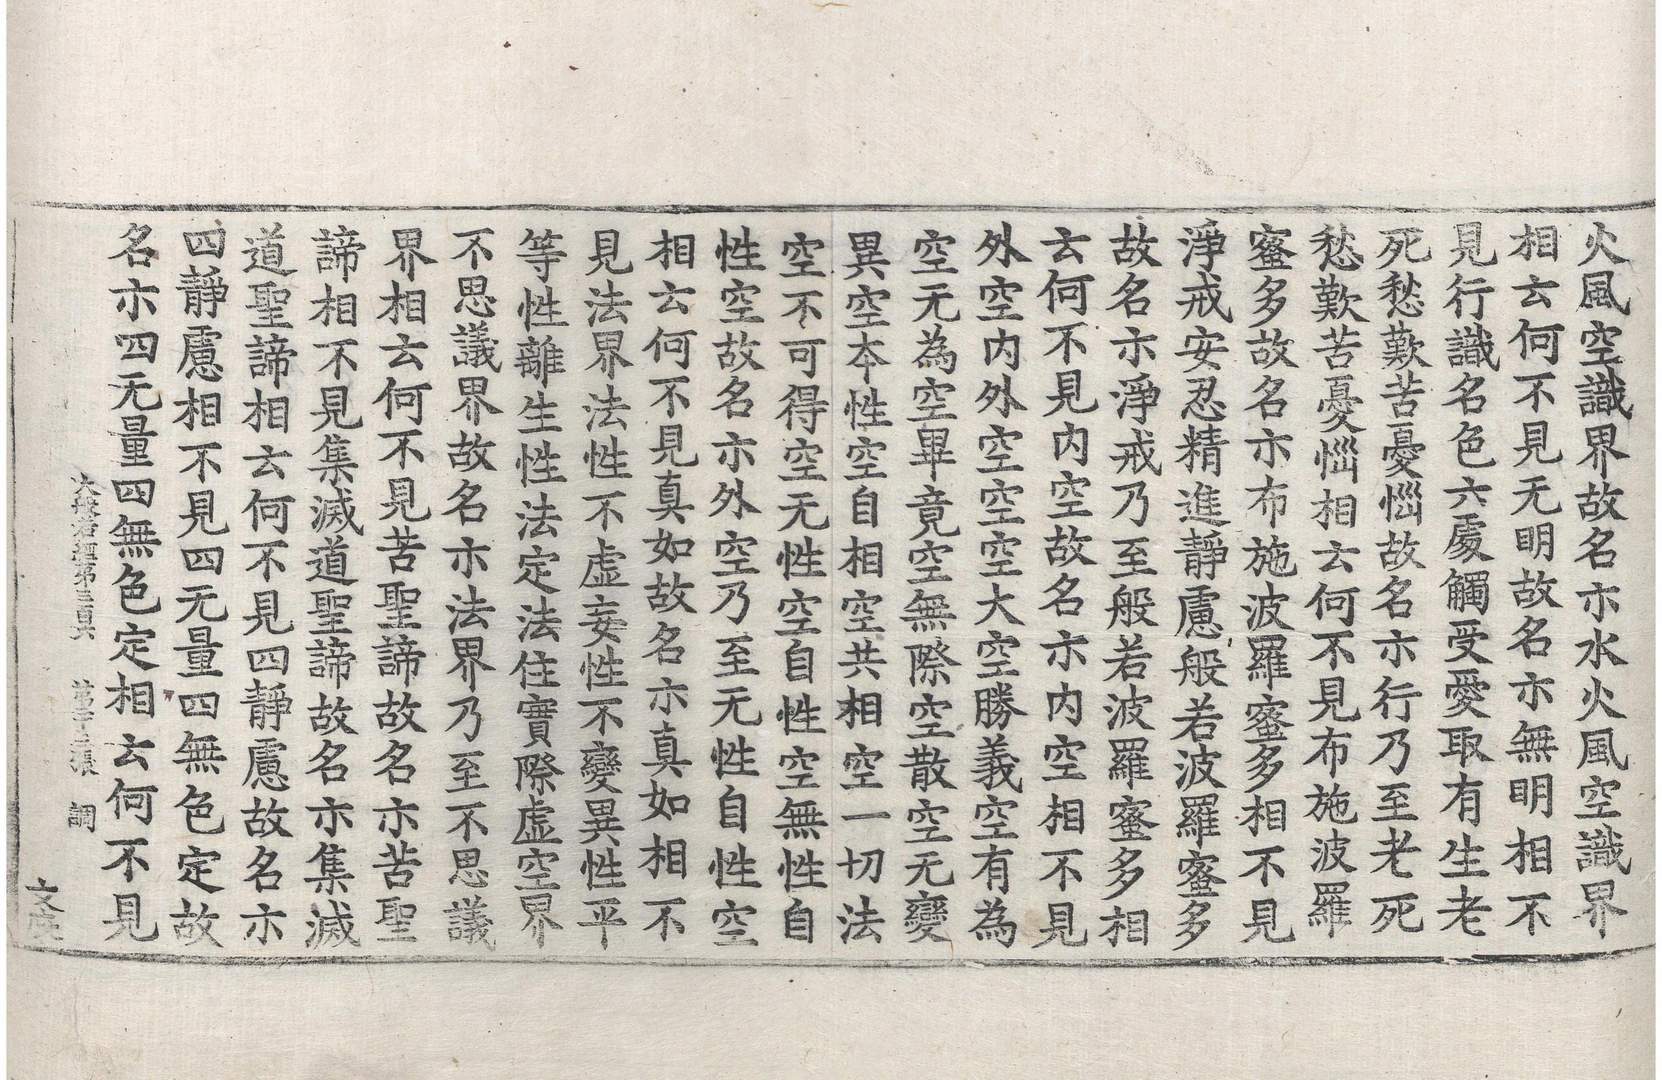 火風空識界故名亦水火風空識界
相云何不見无明故名亦無明相不
見行識名色六處觸受愛取有生老
死愁歎苦憂惱故名亦行乃至老死
愁歎苦憂惱相云何不見布施波羅
蜜多故名亦布施波羅蜜多相不見
淨戒安忍精進靜慮般若波羅蜜多
故名亦淨戒乃至般若波羅蜜多相
云何不見内空故名亦内空相不見
外空内外空空空大空勝義空有為
空无為空畢竟空無際空散空无變
異空本性空自相空共相空一切法
空不可得空无性空自性空無性自
性空故名亦外空乃至无性自性空
相云何不見真如故名亦真如相不
見法界法性不虛妄性不變異性平
等性離生性法定法住實際虛空界
不思議界故名亦法界乃至不思議
界相云何不見苦聖諦故名亦苦聖
諦相不見集滅道聖諦故名亦集滅
道聖諦相云何不見四靜慮故名亦
四靜慮相不見四无量四無色定故
名亦四无量四無色定相云何不見
大般若經第三百六 第十三張 調
文